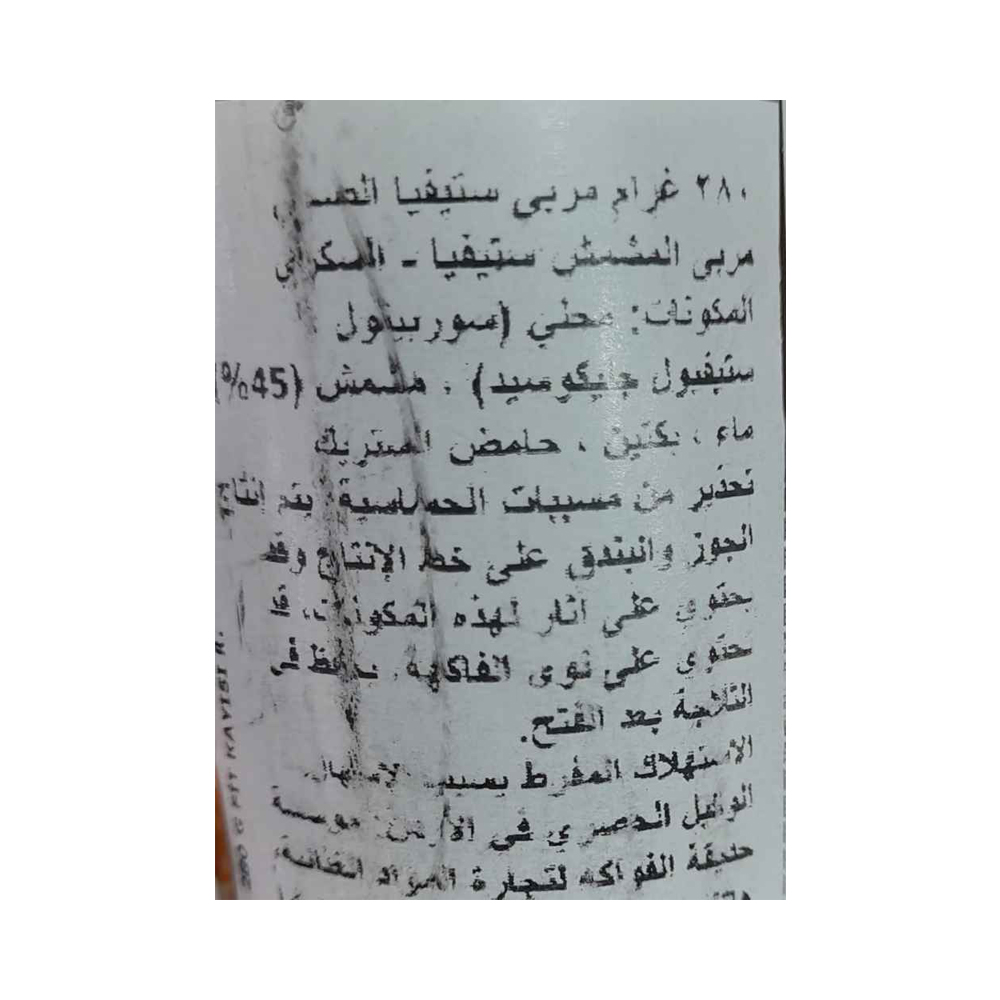 ٢٨٠ غرام مربى ستيفيا
مربى المشمش ستيفيا - السكري
المكونات: محلي (سوربيتول
ستيفيول جليكوسيد) ، مشمش (45%)
ماء ، بكتين ، حامض الستريك
تحذير من مسببات الحساسية: يتم إنتاج
الجوز والبندق على خط الإنتاج وقد
يحتوي على اثار لهذه المكونات، قد
يحتوي على نوى الفاكهة. يحفظ في
الثلاجة بعد الفتح.
الاستهلاك المفرط يسبب الإسهال.
الوكيل الحصري في الأردن: موسسة
حديقة الفواكه لتجارة المواد الغذائية،
280 G PTT KAYISI R.